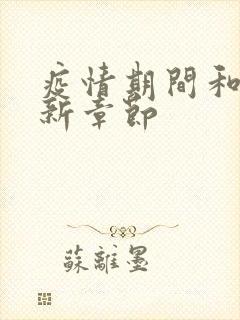 疫情期間和
新章節
蘇離墨